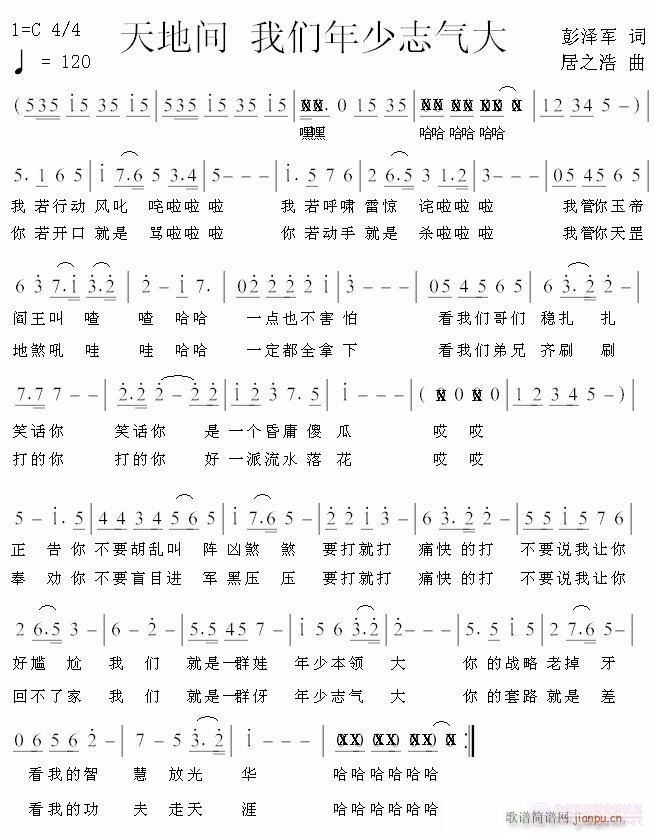 1=C 4/4 天地间 我们年少志气大 彭泽军 词
♩ = 120 居之浩 曲
(535 i5 35 i5 | 535 i5 35 i5 | XX. 0 15 35 | XX XX XX X | 12 34 5 -) |
嘿嘿 哈哈 哈哈 哈哈
5. 1 6 5 | i 7.6 5 3.4 | 5 - - - | i. 5 7 6 | 2 6.5 3 1.2 | 3 - - - | 05 45 6 5 |
我 若行动 风叱 咤啦啦 啦 我 若呼啸 雷惊 诧啦啦 啦 我管你玉帝
你 若开口 就是 骂啦啦 啦 你 若动手 就是 杀啦啦 啦 我管你天罡
6 3 7.i 3.2 | 2 - i 7. | 02 2 2 i 2 | 2 - - - | 05 45 6 5 | 6 3. 2 2 |
阎王叫 喳 喳 哈哈 一点也不害 怕 看我们哥们 稳扎 扎
地煞吼 哇 哇 哈哈 一定都全拿 下 看我们弟兄 齐刷 刷
7.7 7 - - | 2.2 2 - 2 2 | i 2 3 7. 5 | i - - - | ( X 0 X 0 | 12 34 5 - ) |
笑话你 笑话你 是 一个昏庸 傻 瓜 哎 哎
打的你 打的你 好 一派流水 落 花 哎 哎
5 - i. 5 | 44 34 56 5 | i 7.6 5 - | 22 i 3 - | 6 3. 2 2 - | 55 i5 76 |
正 告 你 不要胡乱叫 阵 凶煞 煞 要打就打 痛快 的 打 不要说我让你
奉 劝 你 不要盲目进 军 黑压 压 要打就打 痛快 的 打 不要说我让你
2 6.5 3 - | 6 - 2 - | 5.5 45 7 - | i 5 6 3.2 | 2 - - - | 5. 5 i 5 | 2 7.6 5 - |
好尴 尬 我 们 就是一群娃 年少本领 大 你 的战略 老掉 牙
回不了 家 我 们 就是一群伢 年少志气 大 你 的套路 就是 差
06 56 2 - | 7 - 5 3. 2 | i - - - | (XX) (XX) (XX) X :||
看我的智 慧 放光 华 哈哈哈哈哈哈
看我的功 夫 走天 涯 哈哈哈哈哈哈
歌谱简谱网
jianpu.cn